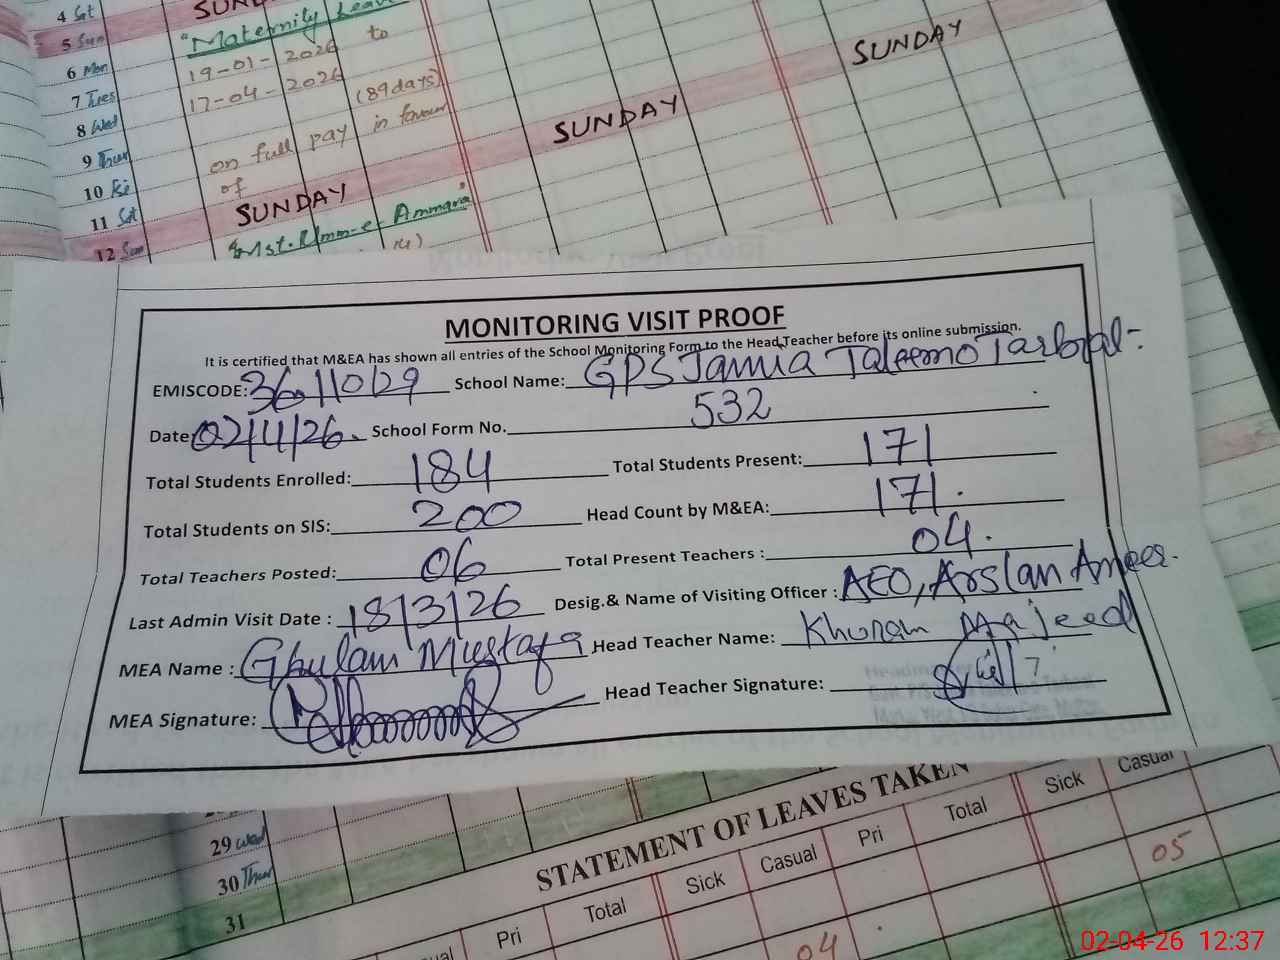 4 Sat
5 Sun
"Maternity Leave
6 Mon
19-01-2026 to
7 Tues
17-04-2026
8 Wed
(89 days)
9 Thur
on full pay in favour
10 Fri
of
11 Sat
SUNDAY SUNDAY SUNDAY
12 Sun
"Mst. Umm-e-Ammara"
MONITORING VISIT PROOF
It is certified that M&EA has shown all entries of the School Monitoring Form to the Head Teacher before its online submission.
EMISCODE: 36110129 School Name: GPS Jamia Taleemo Tarbiat-
Date 02/4/26. School Form No. 532
Total Students Enrolled: 184 Total Students Present: 171
Total Students on SIS: 200 Head Count by M&EA: 171.
Total Teachers Posted: 06 Total Present Teachers : 04.
Last Admin Visit Date : 18/3/26 Desig.& Name of Visiting Officer : AEO, Arslan Amees.
MEA Name : Ghulam Mustafa Head Teacher Name: Khuram Majeed
MEA Signature: Head Teacher Signature:
29 Wed
30 Thur
31
STATEMENT OF LEAVES TAKEN
Pri Total Sick Casual Pri Total Sick Casual
04 05
02-04-26 12:37